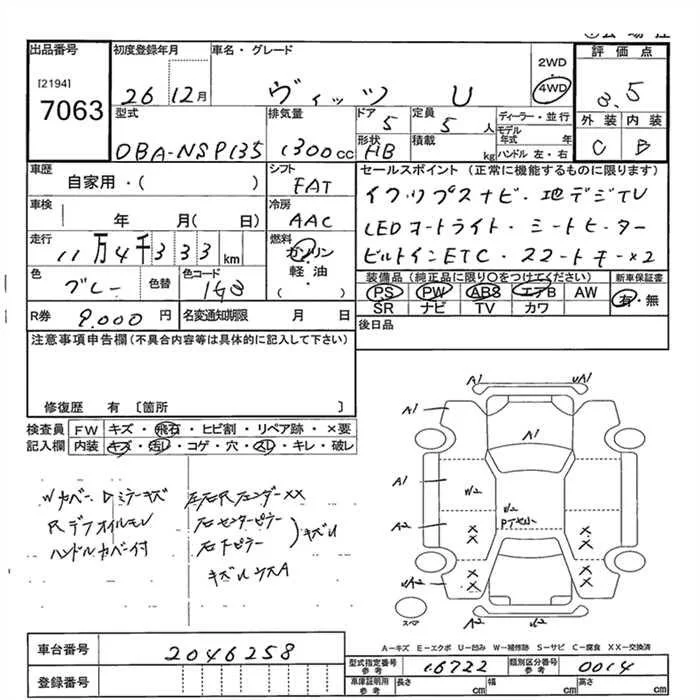 出品番号
[2194]
7063
初度登録年月
26 12月
車名・グレード
ヴィッツ U
2WD・
4WD
評価点
3.5
型式
DBA-NSP135
排気量
1300cc
ドア
5
定員
5 人
形状
HB
積載
kg
ディーラー・並行
モデル年式 年
ハンドル 左・右
外装 内装
C B
車歴
自家用・( )
シフト
FAT
セールスポイント(正常に機能するものに限ります)
車検
年 月( 日)
冷房
AAC
走行
11万4千333km
燃料
ガソリン
軽油
・( )
LEDオートライト・シートヒーター
ビルトインETC・スマートキー×2
色
グレー
色替
色コード
1G3
装備品(純正品に限り○をつけてください)
PS PW ABS エアB AW
SR ナビ TV カワ
新車保証書
有・無
R券
9,000円
名変通知期限 月 日
後日品
注意事項申告欄(不具合内容等は具体的に記入して下さい)
修復歴 有 〔箇所 〕
検査員
記入欄
FW キズ・飛石・ヒビ割・リペア跡・×要
内装 キズ・汚レ・コゲ・穴・スレ・キレ・破レ
Wカバー Dミラーキズ
Rデフオイルモレ
ハンドルカバー付
左右Rフェンダー××
右センターピラー
右下ピラー
キズU
A1 uA1
A1
A1
A1
W2
W2
A2
A2
スペア
A-キズ E-エクボ U-凹み W-補修跡 S-サビ C-腐食 XX-交換済
車台番号
2046258
登録番号
型式指定番号
参考
16722
類別区分番号
参考
0014
車庫証明用
参考
長さ cm
幅 cm
高さ cm